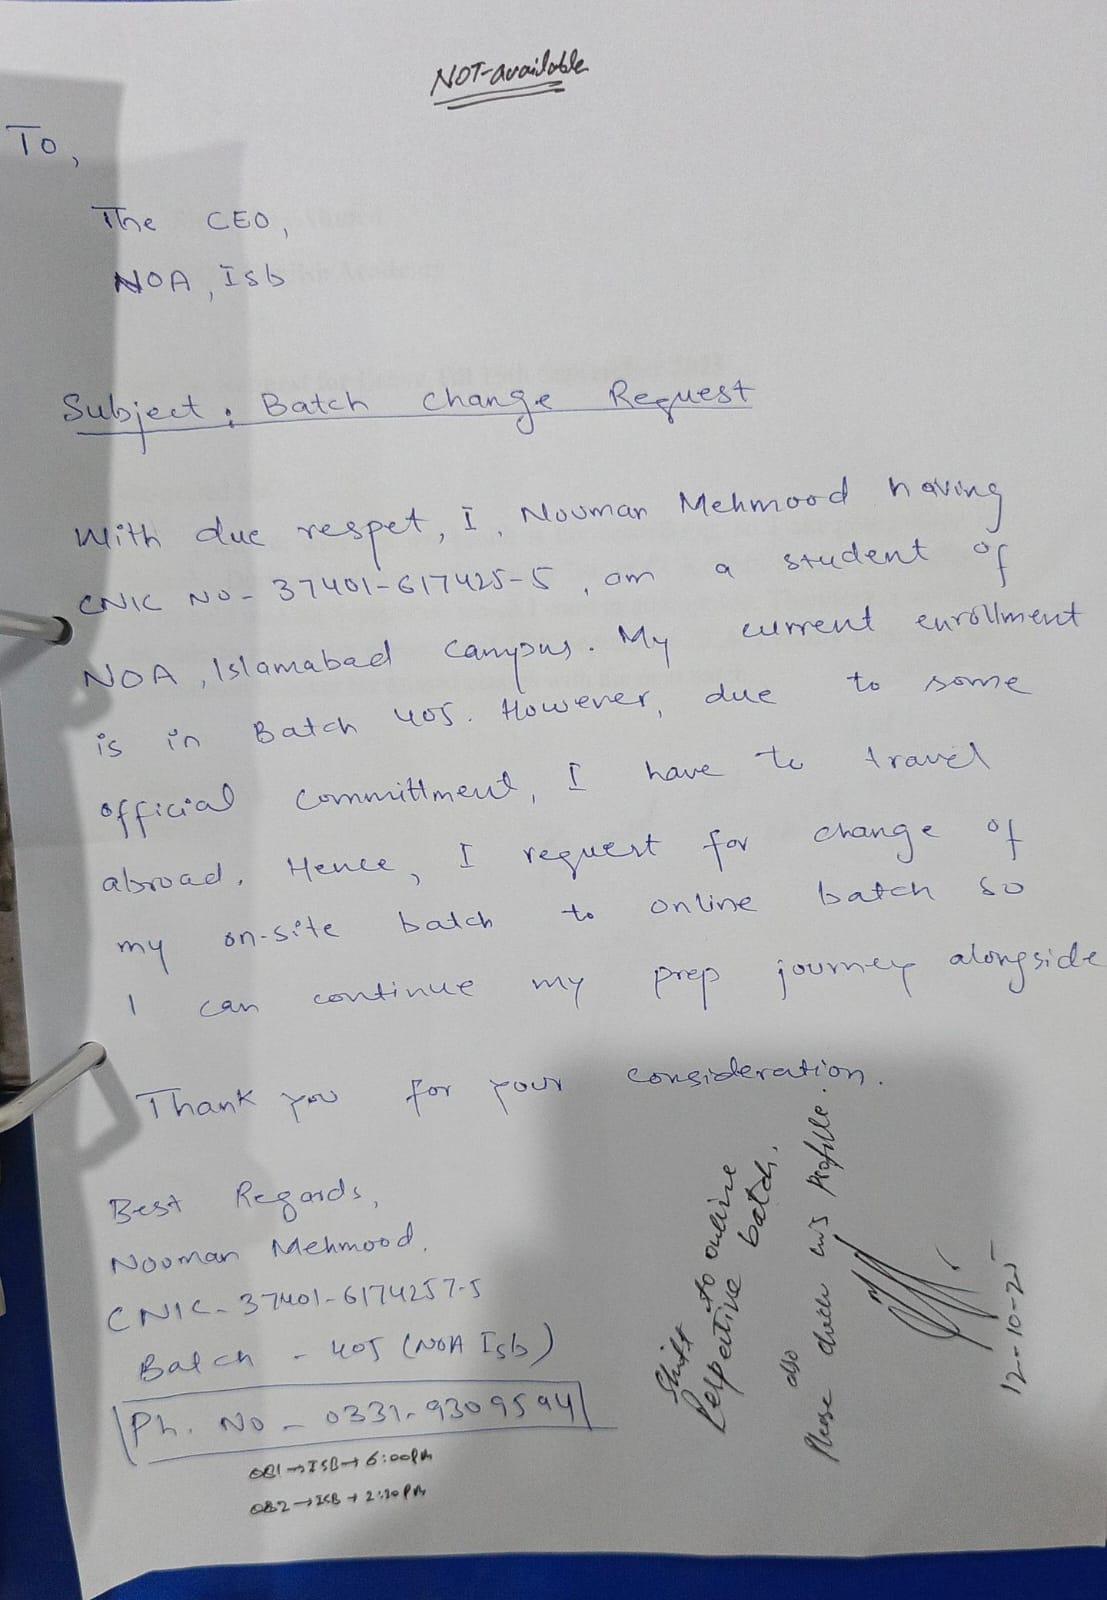 NOT-available
To,
The CEO,
NOA, Isb
Subject: Batch Change Request
With due respet, I, Nouman Mehmood having
CNIC No- 37401-617425-5, am a student of
NOA, Islamabad Campus. My current enrollment
is in Batch 405. However, due to some
official committment, I have to travel
abroad. Hence, I request for change of
my on-site batch to online batch so
I can continue my prep journey alongside
Thank you for your consideration.
Best Regards,
Nooman Mehmood.
CNIC- 37401-6174257-5
Batch - 405 (NOA Isb)
Ph. No - 0331-9309594
OB1→ISB→6:00PM
OB2→ISB→2:30PM
Shift to online
Respective batch.
also
Please check his profile.
12-10-25